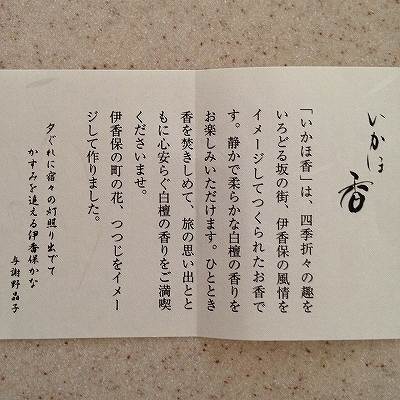 いかほ
香
「いかほ香」は、四季折々の趣を
いろどる坂の街、伊香保の風情を
イメージしてつくられたお香で
す。静かで柔らかな白檀の香りを
お楽しみいただけます。ひととき
香を焚きしめて、旅の思い出とと
もに心安らぐ白檀の香りをご満喫
くださいませ。
伊香保の町の花、つつじをイメー
ジして作りました。
夕ぐれに宿々の灯照り出でて
かすみを追える伊香保かな
与謝野晶子